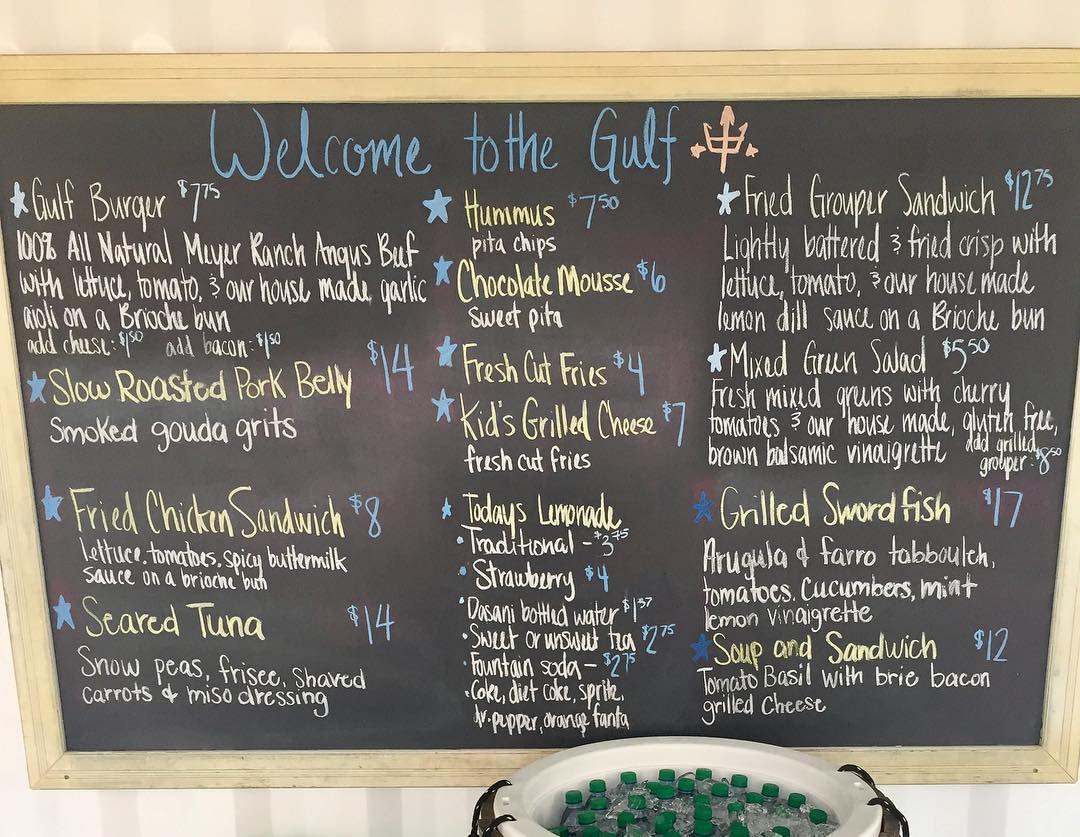 Welcome to the Gulf
Gulf Burger $7.75
100% All Natural Meyer Ranch Angus Beef
with lettuce, tomato, & our house made garlic
aioli on a Brioche bun
add cheese: $1.50 add bacon: $1.50
Slow Roasted Pork Belly $14
Smoked gouda grits
Fried Chicken Sandwich $8
lettuce, tomatoes, spicy buttermilk
sauce on a brioche bun
Seared Tuna $14
Snow peas, frisee, shaved
carrots & miso dressing
Hummus $7.50
pita chips
Chocolate Mousse $6
sweet pita
Fresh Cut Fries $4
Kid's Grilled Cheese $7
fresh cut fries
Todays Lemonade
Traditional - $3.75
Strawberry $4
Dasani bottled water $1.37
Sweet or unsweet tea $2.75
Fountain soda - $2.75
Coke, diet coke, sprite,
dr. pepper, orange fanta
Fried Grouper Sandwich $12.75
Lightly battered & fried crisp with
lettuce, tomato, & our house made
lemon dill sauce on a Brioche bun
Mixed Green Salad $5.50
Fresh mixed greens with cherry
tomatoes & our house made, gluten free,
brown balsamic vinaigrette add grilled
grouper: $8.50
Grilled Swordfish $17
Arugula & farro tabbouleh,
tomatoes, cucumbers, mint
lemon vinaigrette
Soup and Sandwich $12
Tomato Basil with brie bacon
grilled cheese